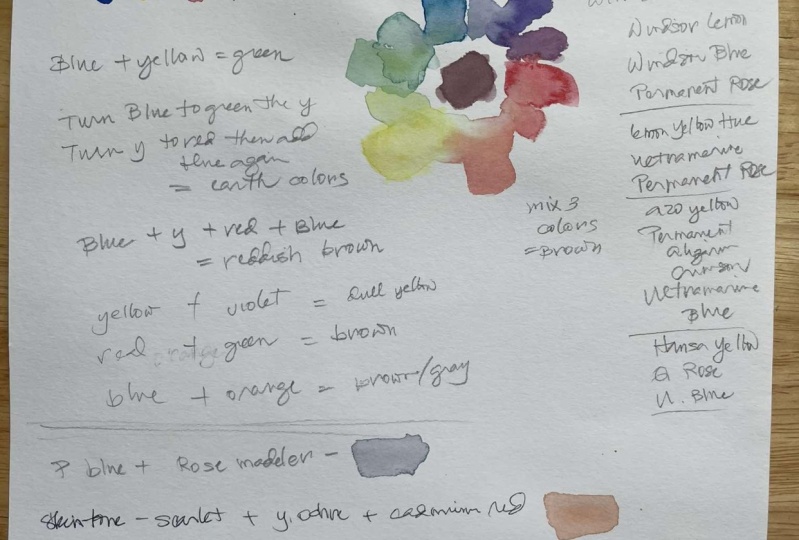 Blue + yellow = green
Turn Blue to green the y
Turn y to red then add
blue again
= earth colors
Blue + y + red + Blue
= reddish brown
yellow + violet = dull yellow
red + green = brown
orange
blue + orange = brown/gray
P blue + Rose madder -
skintone - scarlet + y. ochre + cadmium red
mix 3
colors
= Brown
Windsor lemon
Windsor Blue
Permanent Rose
lemon yellow Hue
Permanent Rose
azo yellow
Permanent
Ultramarine
Blue
Hansa yellow
Rose
U. Blue